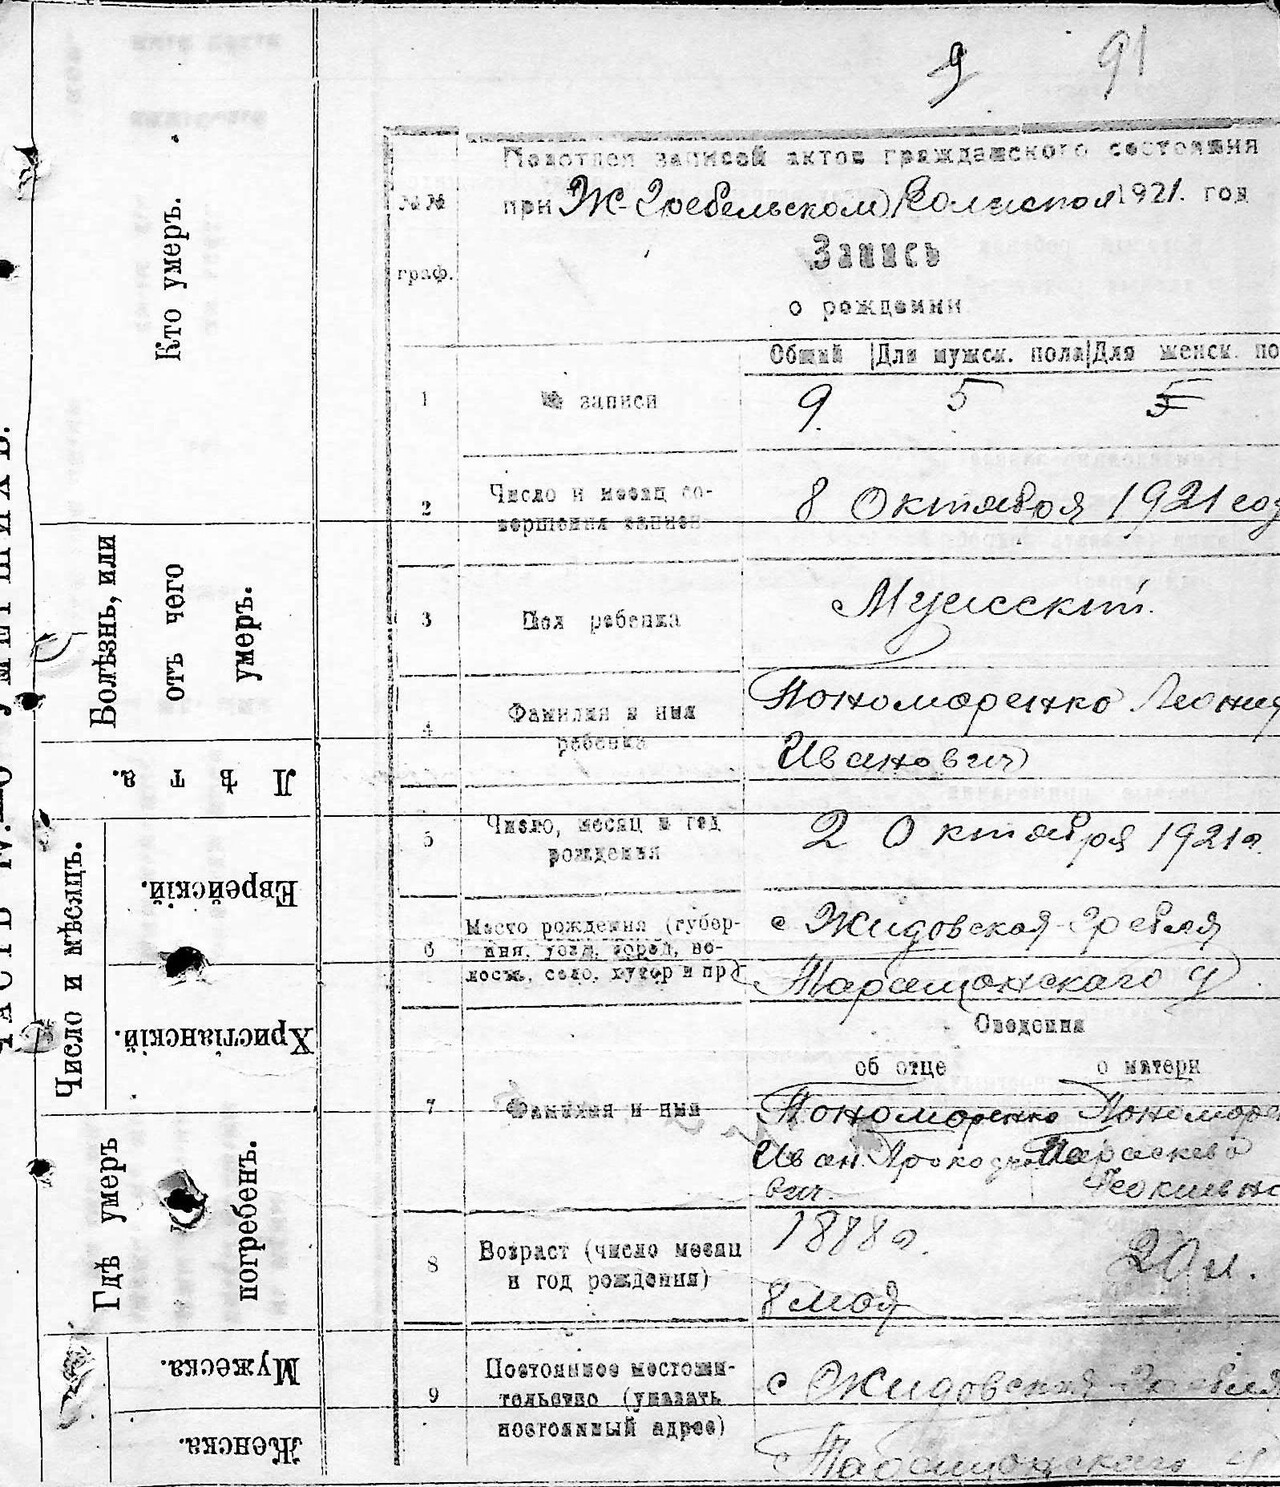 9 91
Подотдел записей актов гражданского состояния
№№ при Ж-Гребельском Волиспол 1921. год
граф.
Запись
о рождении
Общий | Для мужск. пола | Для женск. по
1 № записи 9. 5 5
2 Число и месяц со-
вершения записи 8 Октября 1921 год
3 Пол ребенка Мужский.
4 Фамилия и имя
ребенка Пономоренко Леонид
Иванович
5 Число, месяц и год
рождения 2 Октября 1921г.
6 Место рождения (губер-
ния, уезд, город, во-
лость, село, хутор и пр) с Жидовская-Гребля
Таращанского у
Сведения
об отце о матери
7 Фамилия и имя Пономоренко Пономорен
Иван Прокофие Параскева
вич.
8 Возраст (число месяц
и год рождения) 1888г. 20 л.
8 мая
9 Постоянное местожи-
тельство (указать
постоянный адрес) с Жидовская Гребля
Таращанского у
Кто умеръ.
Болѣзнь, или
отъ чего
умеръ.
Лѣта.
Число и мѣсяцъ.
Еврейскій.
Христіанскій.
Гдѣ умеръ
погребенъ.
Мужеска.
Женска.